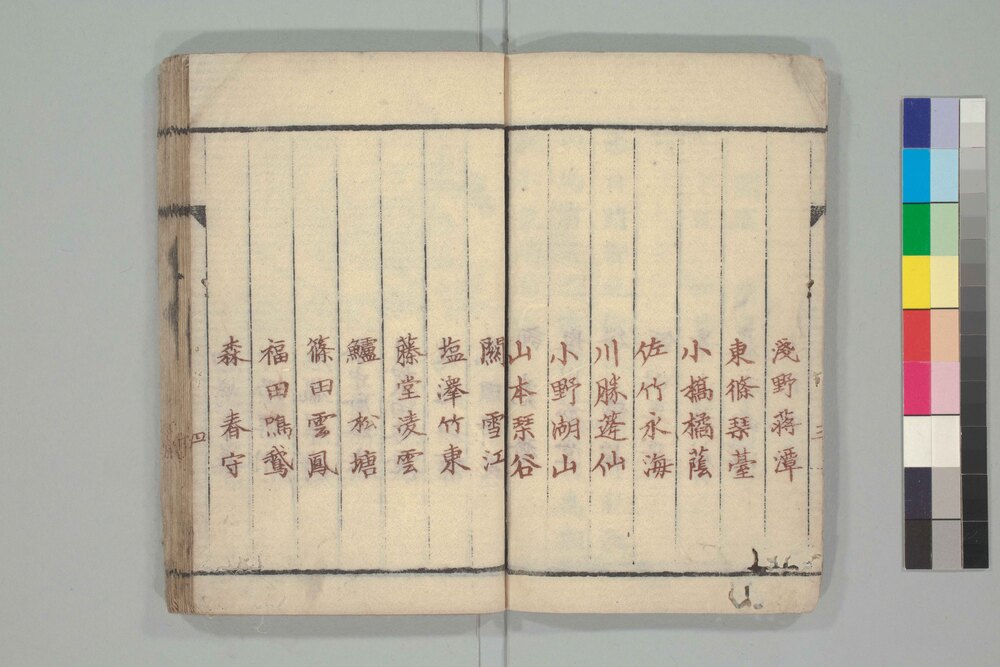 淺野蔣潭
東條琴臺
小橋橘蔭
佐竹永海
川勝蓬仙
小野湖山
山本琴谷
關雪江
塩澤竹東
藤堂凌雲
鱸松塘
篠田雲鳳
福田鳴鵞
森春守
四